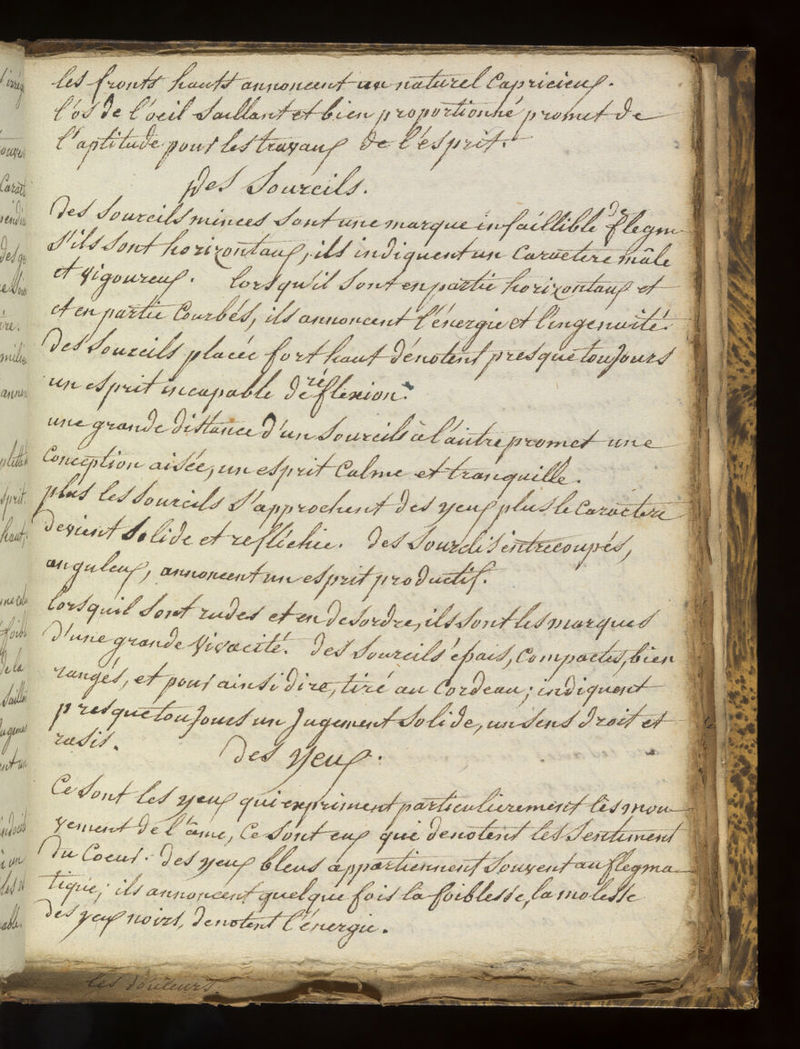 les fronts hauts annoncent un naturel Capricieux.
l'os de l'oeil Saillant et bien proportionné promet de
l'aptitude pour les travaux de l'ésprit.
des Sourcils.
Des Sourcils minces Sont une marque infaillible de flegm
S'ils Sont horizontaux, ils indiquent un Caractere mâle
et vigoureux. lorsqu'il Sont en partie horizontaux et
et en partie Courbés, ils annoncent l'énergie et l'ingenuité.
Des Sourcils placée fort haut dénotent presque toujours
un esprit incapable de réflexion.
une grande distance d'un Sourcils à l'autre promet une
Conception aisée, un esprit Calme et tranquille.
plus les Sourcils S'approchent des yeux plus le Caractere
devient Solide et refléchie. des Sourcils entrecoupés,
anguleux, annoncent un esprit productif.
lorsquil Sont rudes et en desordre, ils Sont les marques
d'une grande Vivacité. des Sourcils épais, Compactes, bien
rangés, et pour ainsi dire, tiré au Cordeau; indiquent
presque toujours un Jugement Solide, un Sens droit et
rasis.
Des Yeux.
Ce Sont les yeux qui expriment particulierement les mou
vement de l'âme, Ce Sont eux qui denotent les Sentiment
du Coeur. des yeux bleus appartiennent Souvent au flegma
tique; ils annoncent quelque fois la foiblesse, la molesse
des yeux noirs, denotent l'énergie.
les douleurs.